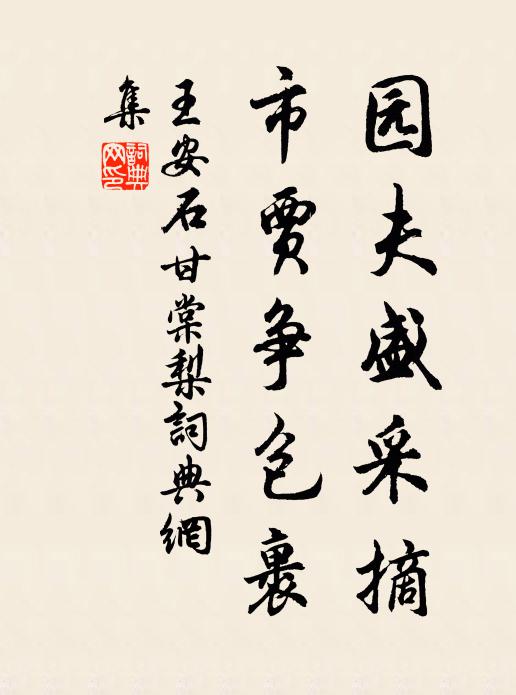 园夫盛采摘
市贾争包裹
王安石甘棠梨詞典網
集
詞典
网印